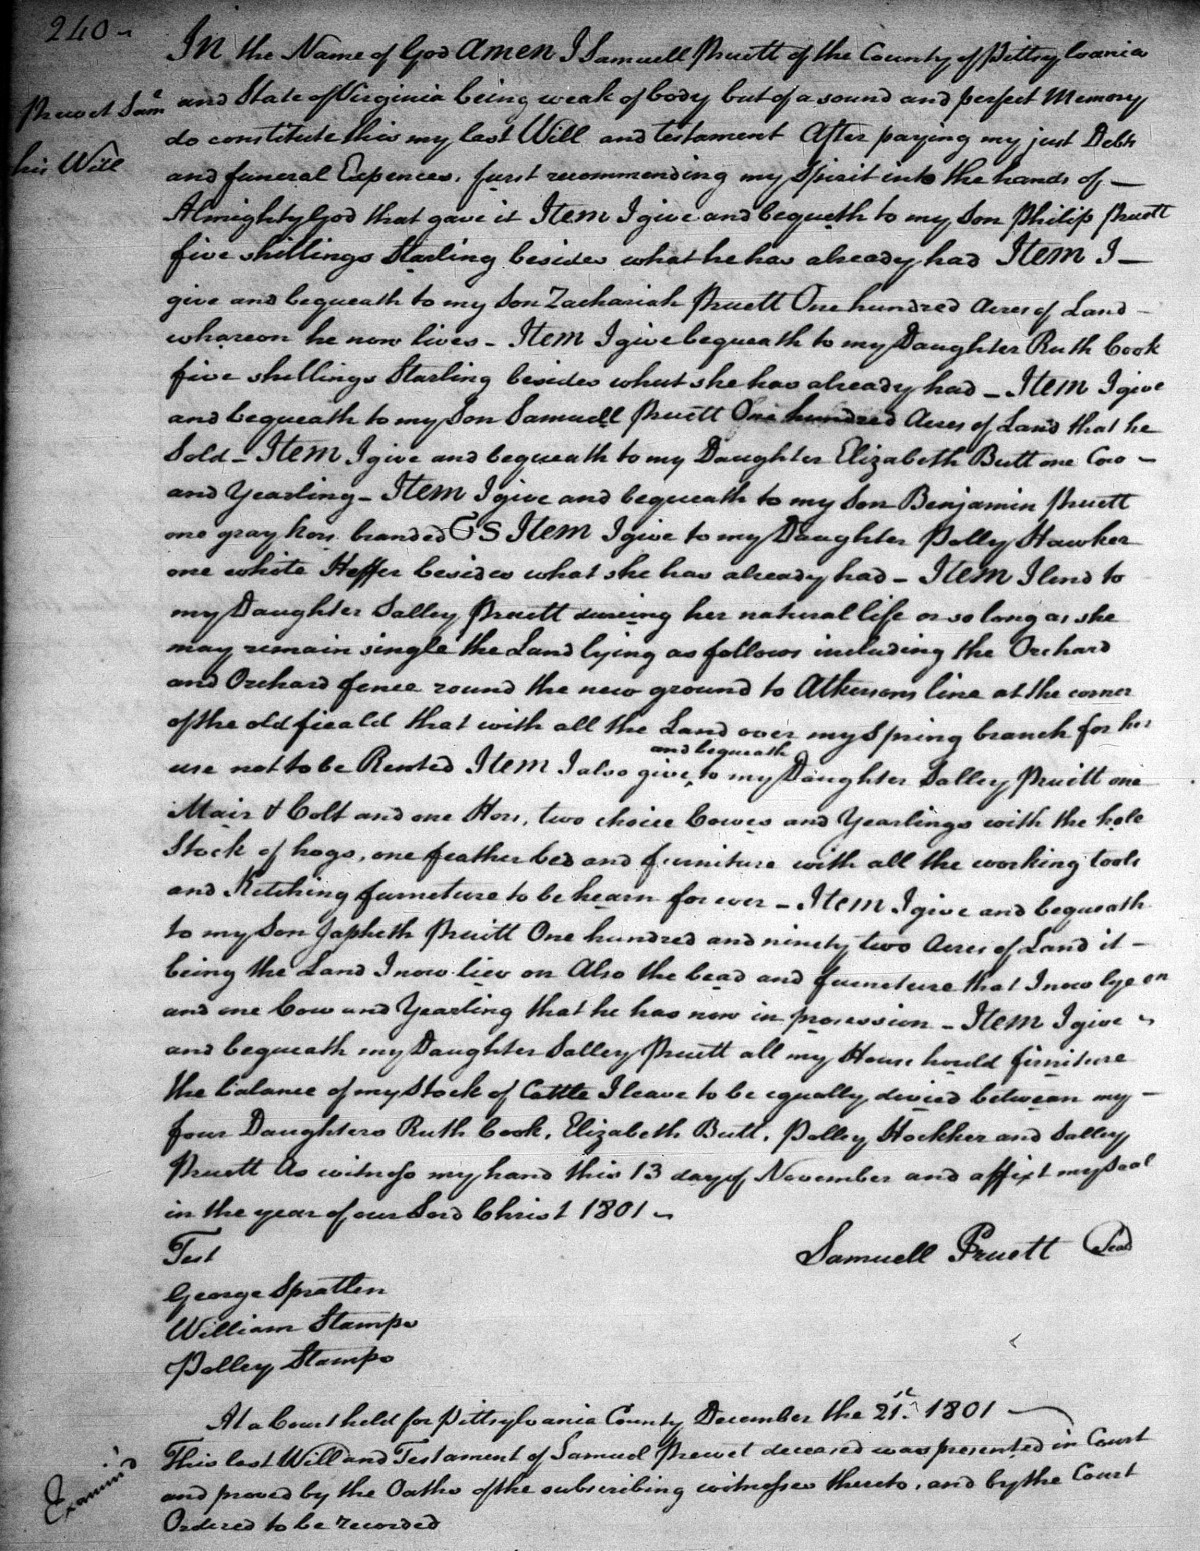 240
In the Name of God Amen I Samuell Pruett of the County of Pittsylvania
Prewet Saml
and State of Virginia being weak of body but of a sound and perfect Memory
do constitute this my last Will and testament After paying my just Debts
his Will
and funeral Expences, furst recommending my Spirit into the hands of —
Almighty God that gave it Item I give and bequeth to my Son Philip Pruett
five shillings Starling besides what he has already had Item I —
give and bequeath to my Son Zachariah Pruett One hundred Acres of Land -
whareon he now lives - Item I give bequeath to my Daughter Ruth Cook
five shillings Starling besides what she has already had - Item I give
and bequeath to my Son Samuell Pruett One hundred Acres of Land that he
Sold - Item I give and bequeath to my Daughter Elizabeth Butt one Cow -
and Yearling - Item I give and bequeath to my Son Benjamin Pruett
one gray hors branded TS Item I give to my Daughter Polley Hawker
one white Heffer besides what she has already had - Item I lend to
my Daughter Salley Pruett dureing her natural life or so long as she
may remain single the Land lying as follows including the Orchard
and Orchard fence round the new ground to Atkersons line at the corner
of the old fieald that with all the Land over my Spring branch for her
use not to be Rented Item I also give and bequeath to my Daughter Salley Pruitt one
Mair & Colt and one Hors, two choice Cowes and Yearlings with the hole
Stock of hogs, one feather bed and furniture with all the working tools
and Kitching furneture to be hearn for ever - Item I give and bequeath
to my Son Japheth Pruitt One hundred and ninety two Acres of Land it -
being the Land I now liev on Also the bead and furneture that I now lye on
and one Cow and Yearling that he has now in prosession - Item I give
and bequeath my Daughter Salley Pruett all my House hould firniture
the balance of my Stock of Cattle I leave to be equally divied betwean my -
four Daughters Ruth Cook, Elizabeth Butt, Polley Hockker and Salley
Pruett As witness my hand this 13 day of November and affixt my Seal
in the year of our Lord Christ 1801
Test
Samuell Pruett Seal
George Spratlen
William Stamps
Polley Stamps
At a Court held for Pittsylvania County December the 21st. 1801
This last Will and Testament of Samuel Prewet deceased was presented in Court
Examin'd
and proved by the Oaths of the subscribing witnesses thereto, and by the Court
Ordered to be recorded